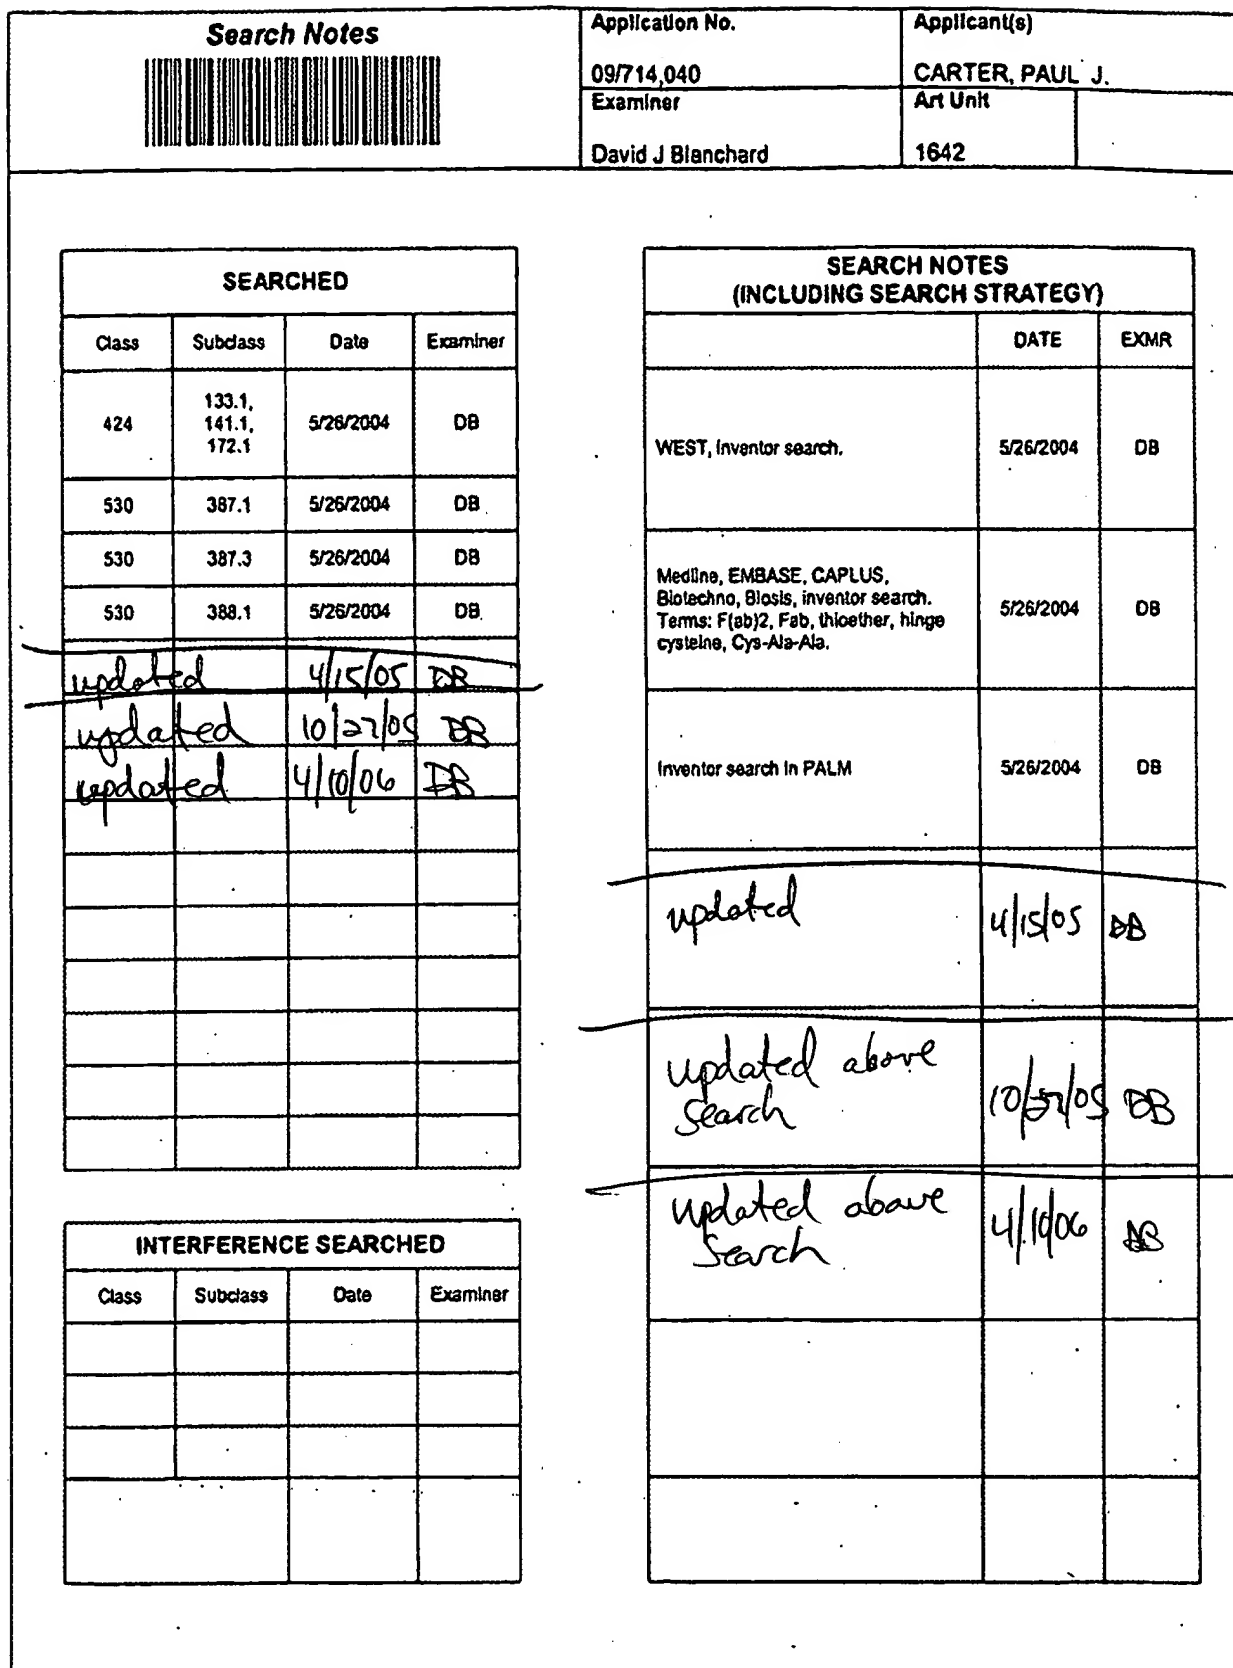 Search Notes
Application No.
09/714,040
Applicant(s)
CARTER, PAUL J.
Examiner
David J Blanchard
Art Unit
1642
SEARCHED
Class Subclass Date Examiner
424 133.1, 141.1, 172.1 5/26/2004 DB
530 387.1 5/26/2004 DB
530 387.3 5/26/2004 DB
530 388.1 5/26/2004 DB
updated 4/15/05 DB
updated 10/27/05 DB
updated 4/10/06 DB
INTERFERENCE SEARCHED
Class Subclass Date Examiner
SEARCH NOTES
(INCLUDING SEARCH STRATEGY)
DATE EXMR
WEST, inventor search. 5/26/2004 DB
Medline, EMBASE, CAPLUS,
Biotechno, Biosis, inventor search.
Terms: F(ab)2, Fab, thioether, hinge 5/26/2004 DB
cysteine, Cys-Ala-Ala.
Inventor search in PALM 5/26/2004 DB
updated 4/15/05 DB
updated above
search 10/27/05 DB
updated above
search 4/10/06 DB